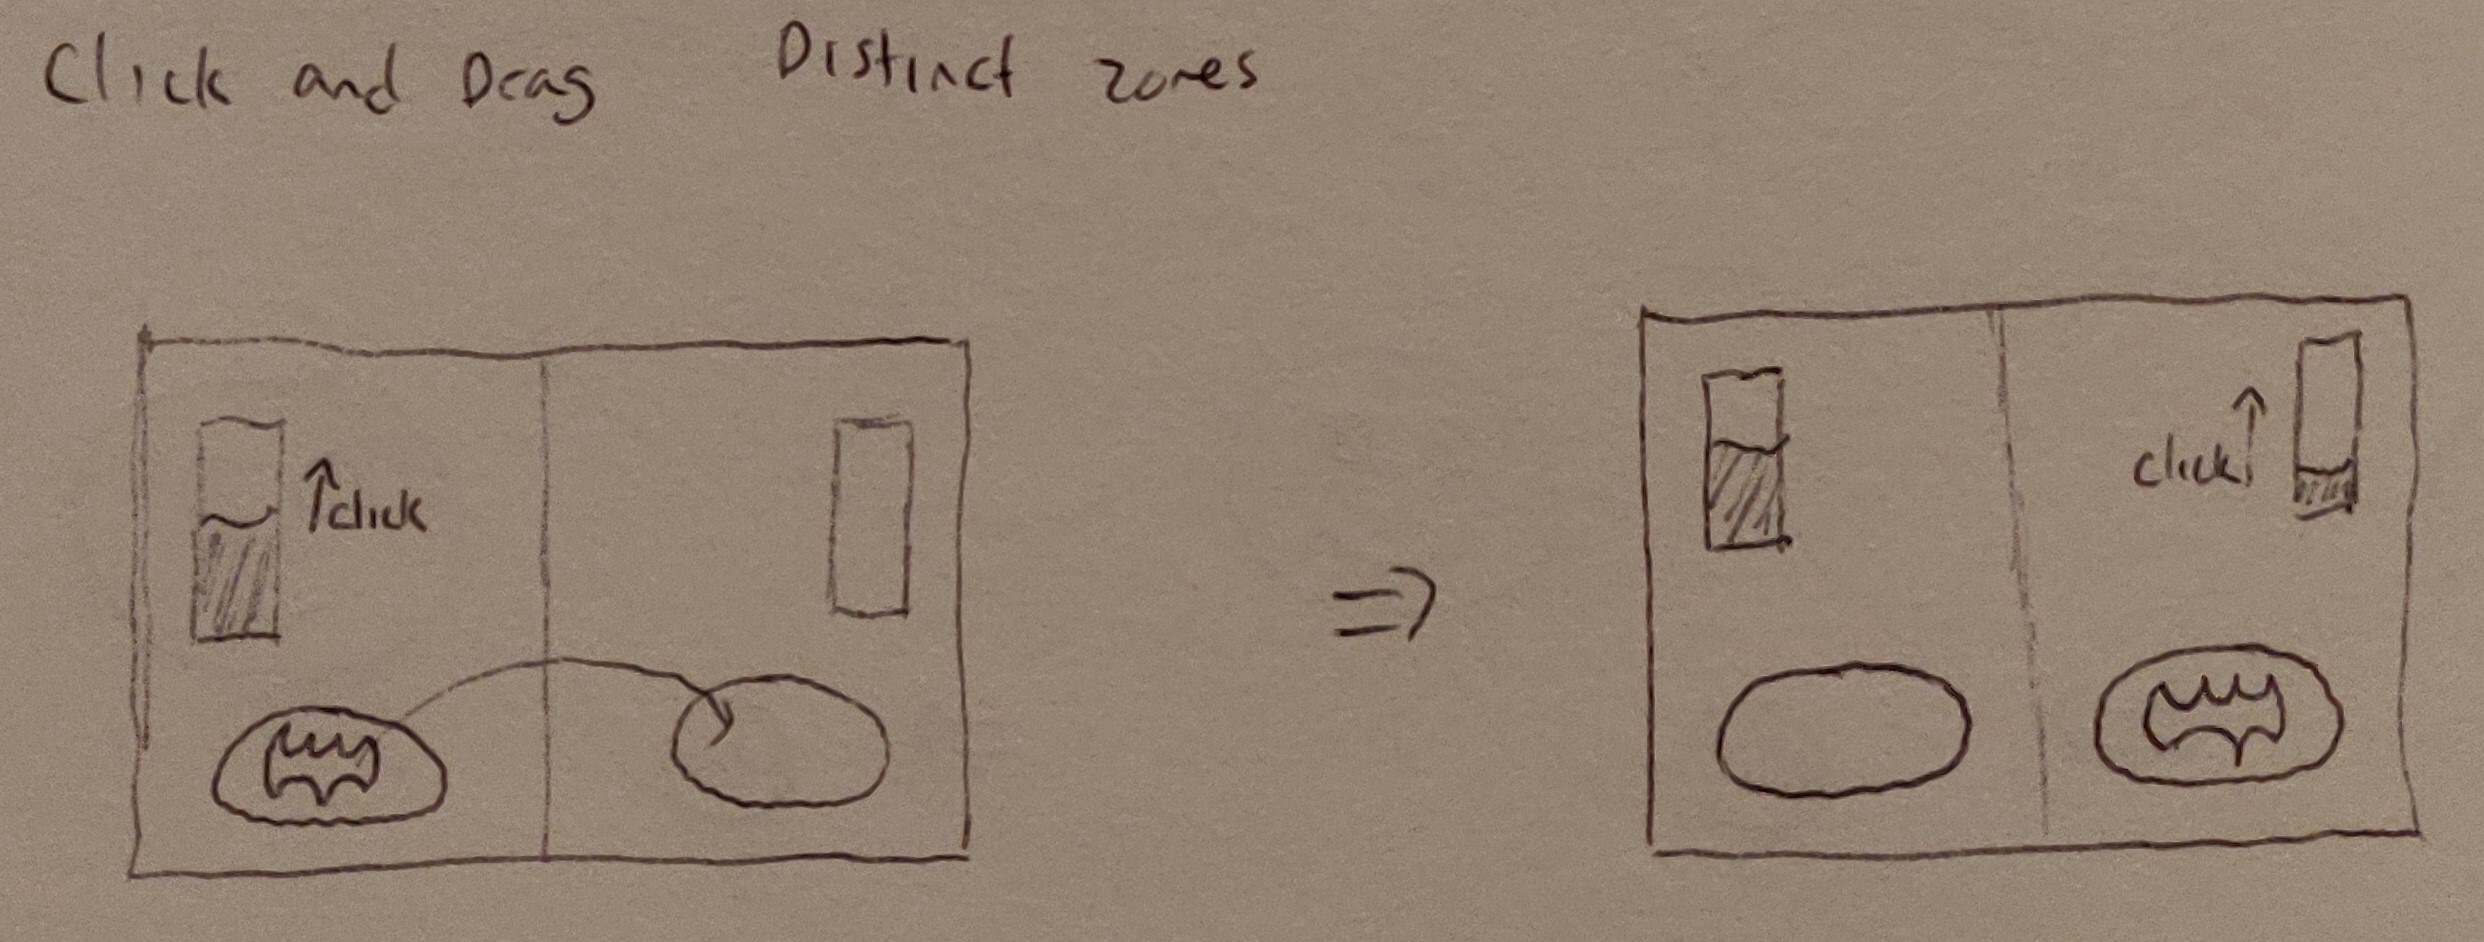 Click and Drag
Distinct zones
click
click